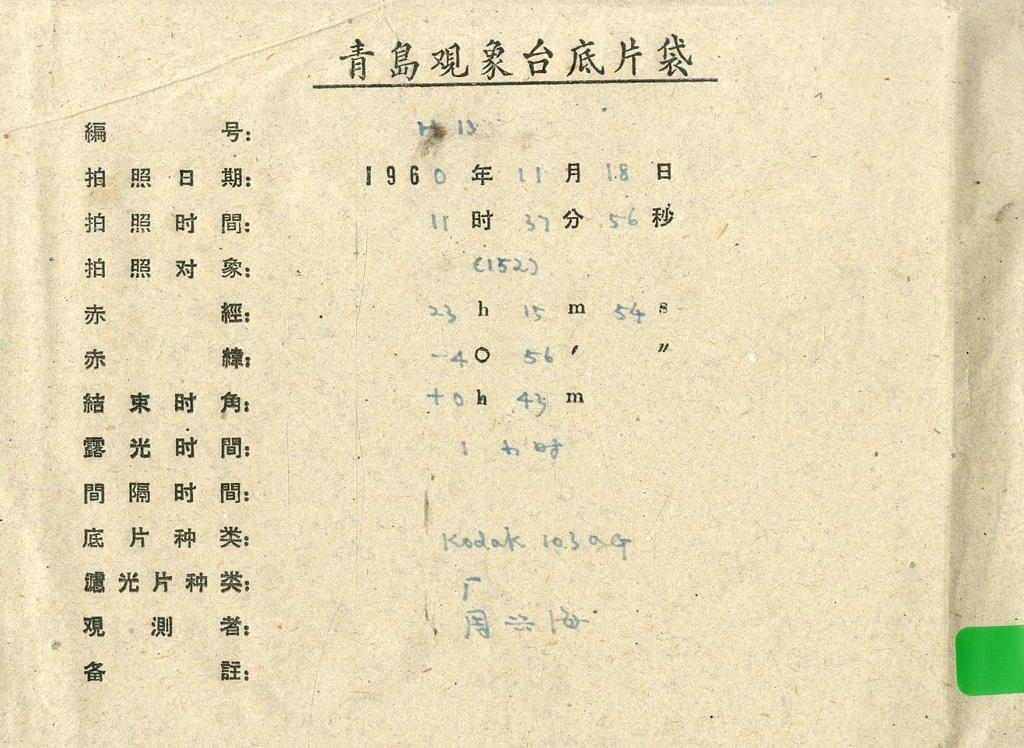 青島观象台底片袋
編号: H 13
拍照日期: 1960年11月18日
拍照时間: 11时37分56秒
拍照对象: (152)
赤經: 23h 15m 54s
赤緯: -4° 56′ ″
結束时角: +0h 43m
露光时間: 1 小时
間隔时間:
底片种类: Kodak 103aG
濾光片种类:
观測者: 周兴海
备註: